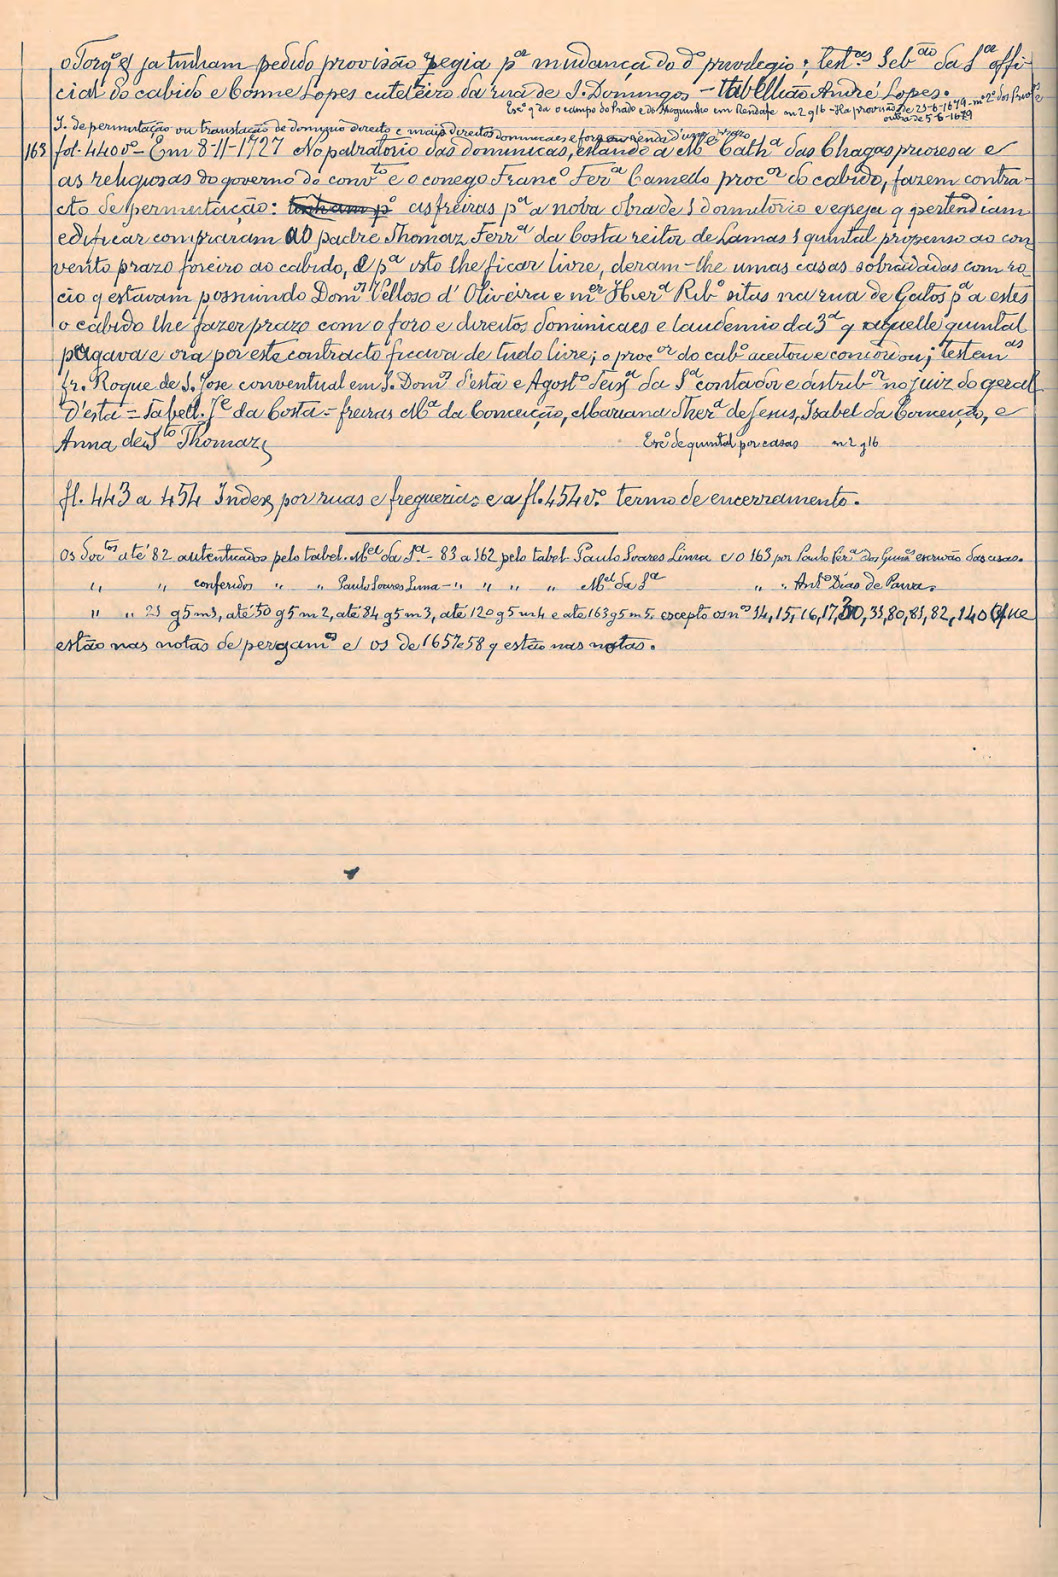 o Torq.es ja tinham pedido provisão regia p.a mudança do d.º privilegio; test.as Seb.ão da S.a offi-
cial do cabido e Cosme Lopes cuteleiro da rua de S. Domingos - Tabellião André Lopes.
Esc.ª q du o campo do Prado e do Moguinho em Rendufe m 2 g 16 - Ha provisão de 23-6-1679 - m.º 2.º dos
outra de 5-6-1679
T. de permutação ou translação de dominio directo e mais direitos dominicaes e foro ou renda d'um
163 fol. 440 vº - Em 8-11-1727 No palratorio das dominicas, estando a M.e Cath.a das Chagas prioresa e
as religiosas do governo do conv.to e o conego Franc.º Fer.a Camello proc.or do cabido, fazem contra-
cto de permutação: tinham p.º as freiras p.a a nova obra de 1 dormitorio e egreja q pertendiam
edificar compraram ao padre Thomaz Ferr.a da Costa reitor de Lamas 1 quintal propenso ao con-
vento prazo foreiro ao cabido, e p.a isto lhe ficar livre, deram-lhe umas casas sobradadas com ro-
cio q estavam possuindo Dom.os Velloso d'Oliveira e m.er Hier.a Rib.º sitas na rua de Gatos p.a a estes
o cabido lhe fazer prazo com o foro e direitos dominicaes e laudemio da 3.a q aquelle quintal
pagava e ora por este contracto ficava de tudo livre; o proc.or do cab.º aceitou e concordou; testem.as
fr. Roque de S. Jose conventual em S. Dom.os d'esta e Agost.º Teix.a da S.a contador e distrib.or no juiz do geral
d'esta = Tabell. J.e da Costa = freiras M.a da Conceição, Marianna Ther.a de Jesus, Isabel da Conceição, e
Anna de S.to Thomaz
Esc.ª de quintal por casas m 2 g 16
fl. 443 a 454 Index por ruas e freguezias e a fl. 454 vº termo de encerramento.
Os doc.tos até 82 autenticados pelo tabel. M.el da S.a - 83 a 162 pelo tabel. Paulo Soares Lima e o 163 por Paulo Fer.a dos Guim.es escrivão das cisas.
" " conferidos " " Paulo Soares Lima - " " " " M.el da S.a " " Ant.º Dias de Paiva.
" " 23 g 5 m 3, até 50 g 5 m 2, até 84 g 5 m 3, até 120 g 5 m 4 e até 163 g 5 m 5. excepto os n.os 14, 15, 16, 17, 30, 35, 80, 81, 82, 140 que
estão nas notas de pergam.os e os de 1657 e 58 q estão nas notas.